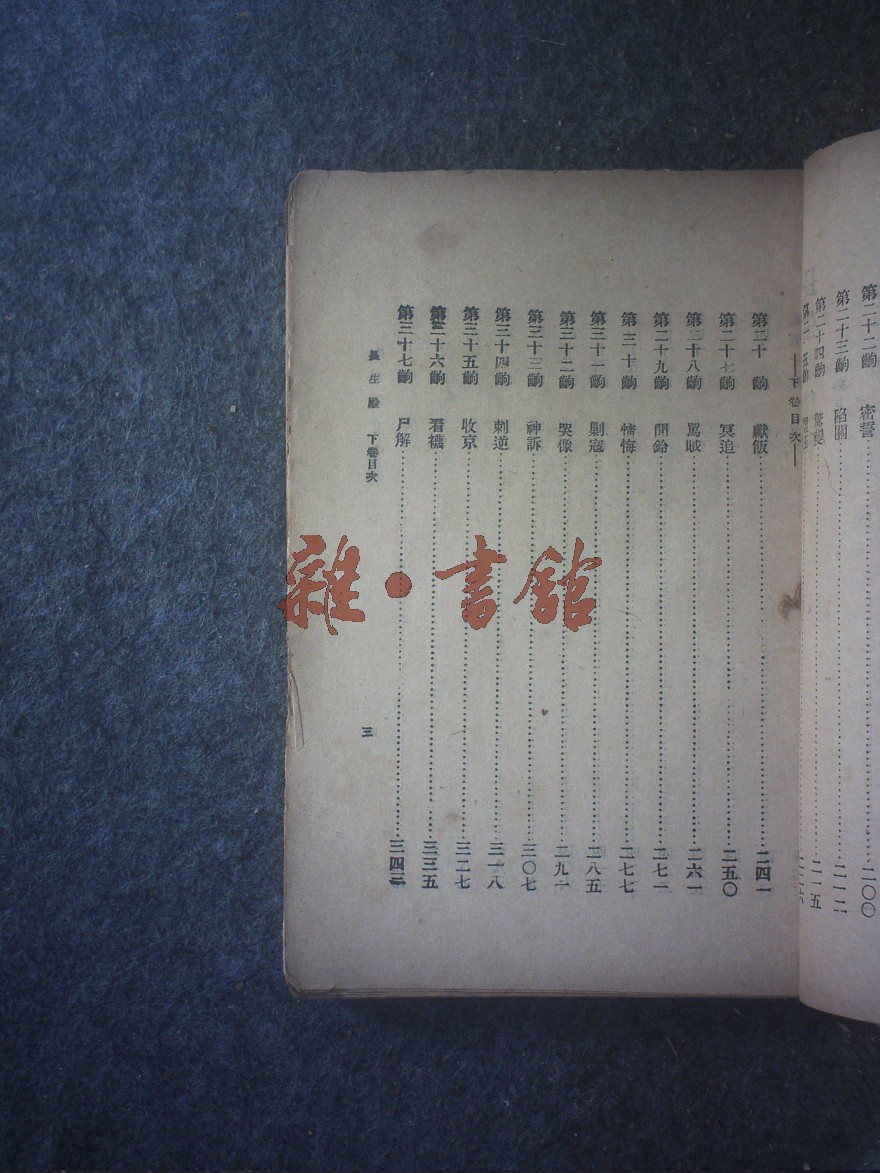 第二十二齣 密誓……二〇〇
第二十三齣 陷關……二一二
第二十四齣 驚變……二一五
下卷目次
第二十 齣 獻飯……二四一
第二十七齣 冥追……二五〇
第二十八齣 罵賊……二六一
第二十九齣 聞鈴……二七二
第三十齣 情悔……二七七
第三十一齣 剿寇……二八五
第三十二齣 哭像……二九一
第三十三齣 神訴……三〇七
第三十四齣 刺逆……三一八
第三十五齣 收京……三二七
第三十六齣 看襪……三三五
第三十七齣 尸解……三四三
長生殿 下卷目次
三
雜·書館